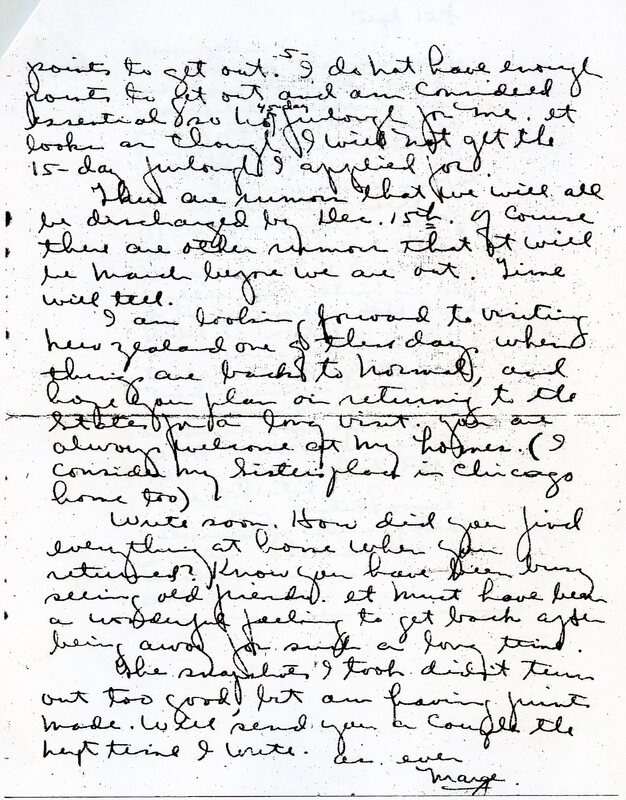 -5-
points to get out. I do not have enough
points to get out and am considered
essential so no 45-day furlough for me. It
looks as though I will not get the
15-day furlough I applied for.
There are rumors that we will all
be discharged by Dec. 15th. Of course
there are other rumors that it will
be March before we are out. Time
will tell.
I am looking forward to visiting
New Zealand one of these days when
things are back to normal, and
hope you plan on returning to the
States for a long visit. You are
always welcome at my homes. (I
consider my sisters place in Chicago
home too)
Write soon. How did you find
everything at home when you
returned? Know you have been busy
seeing old friends. It must have been
a wonderful feeling to get back after
being away for such a long time.
The snapshots I took didn't turn
out too good, but am having prints
made. Will send you a couple the
next time I write.
as ever
Marge.